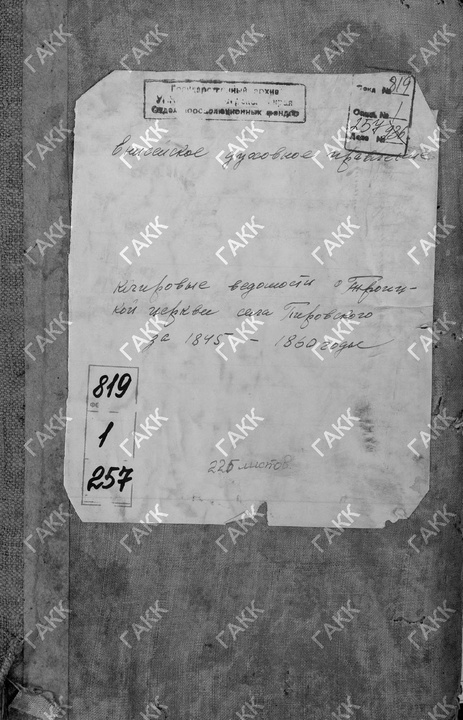 Государственный архив
края
Отдел дореволюционных фондов
Фонд № 819
Опись № 1
Дело № 257
Енисейское духовное правление
клировые ведомости о Троиц-
кой церкви села Пировского
за 1845 – 1860 годы
819
1
257
226 листов
ГАКК